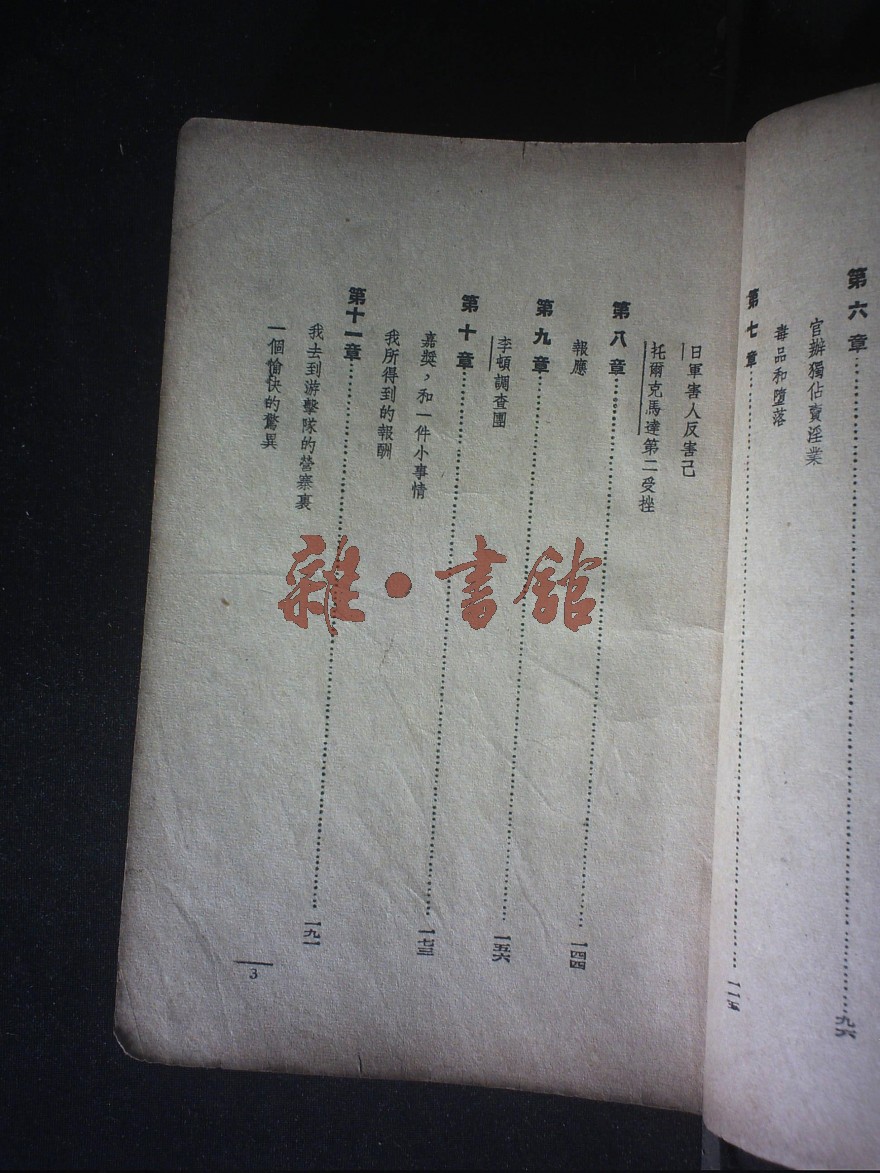 第六章……九六
官辦獨佔賣淫業
毒品和墮落
第七章……一一五
日軍害人反害己
托爾克馬達第二受挫
第八章……一四四
報應
第九章……一五六
李頓調查團
第十章……一七三
嘉獎，和一件小事情
我所得到的報酬
第十一章……一九一
我去到游擊隊的營寨裏
一個愉快的驚異
3
雜·書館